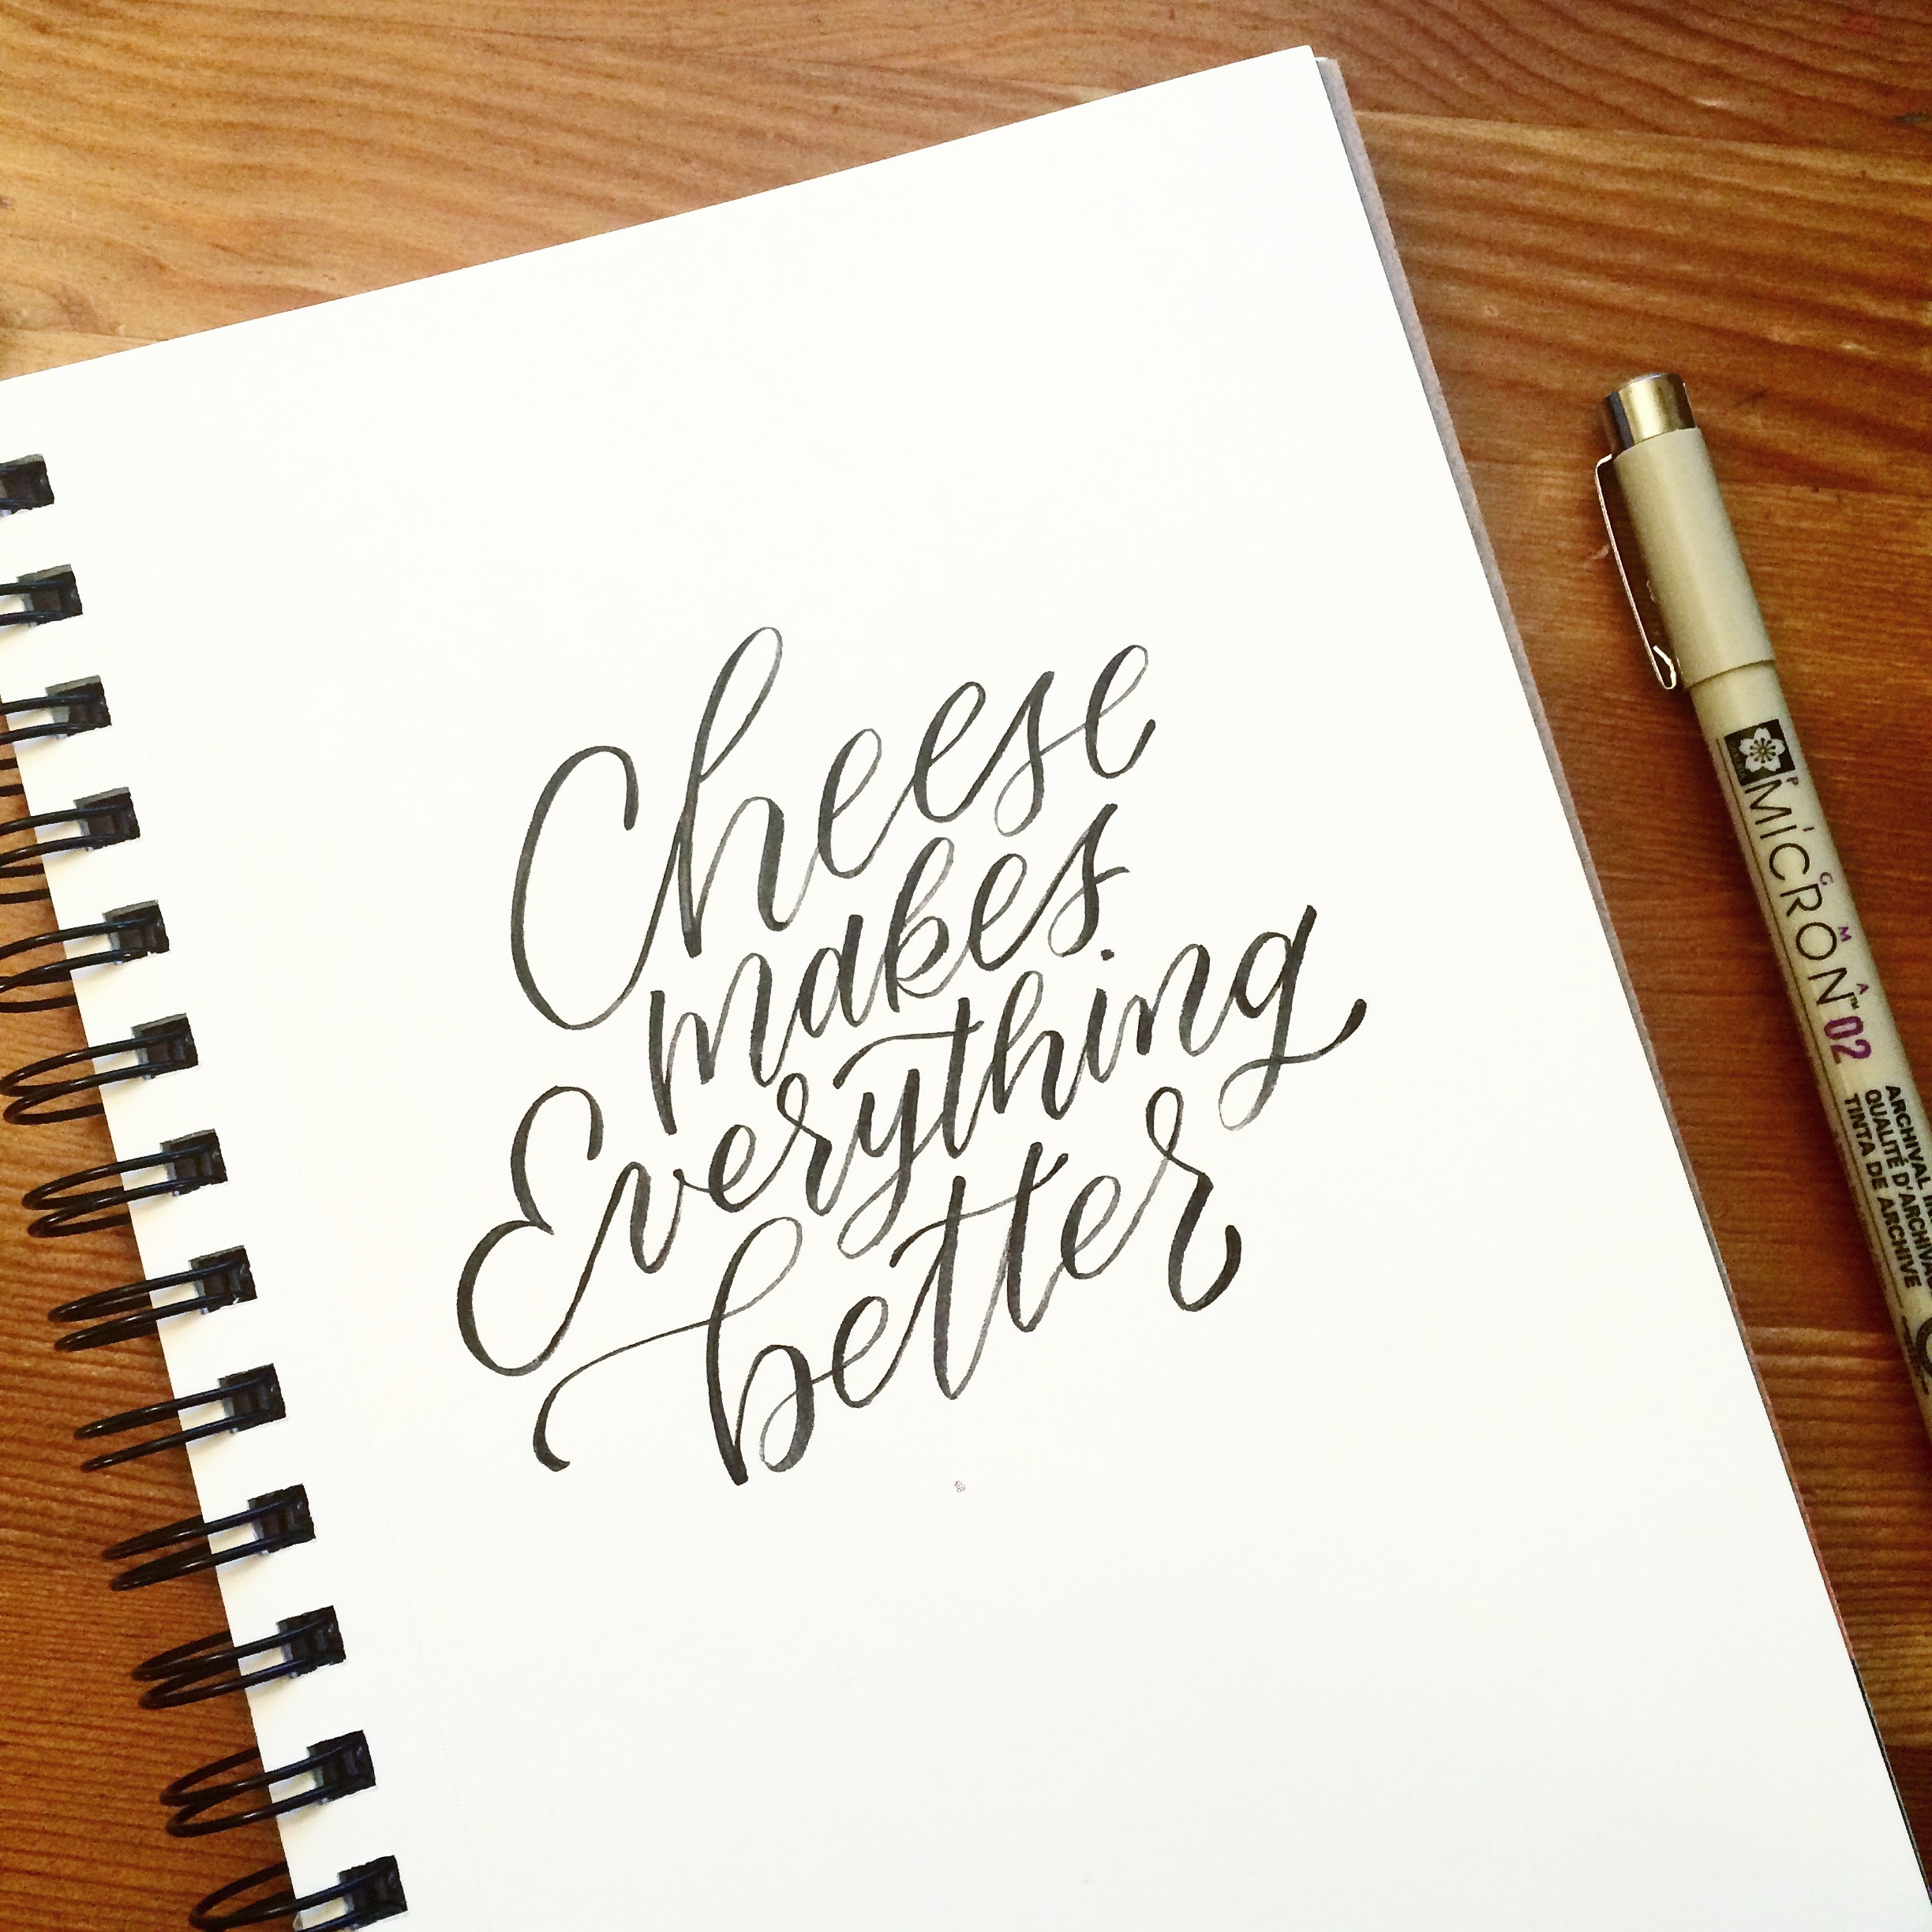 Cheese
makes
Everything
better
PIGMA
MICRON™ 02
ARCHIVAL
QUALITÉ D'ARCHIVA
TINTA DE ARCHIVE